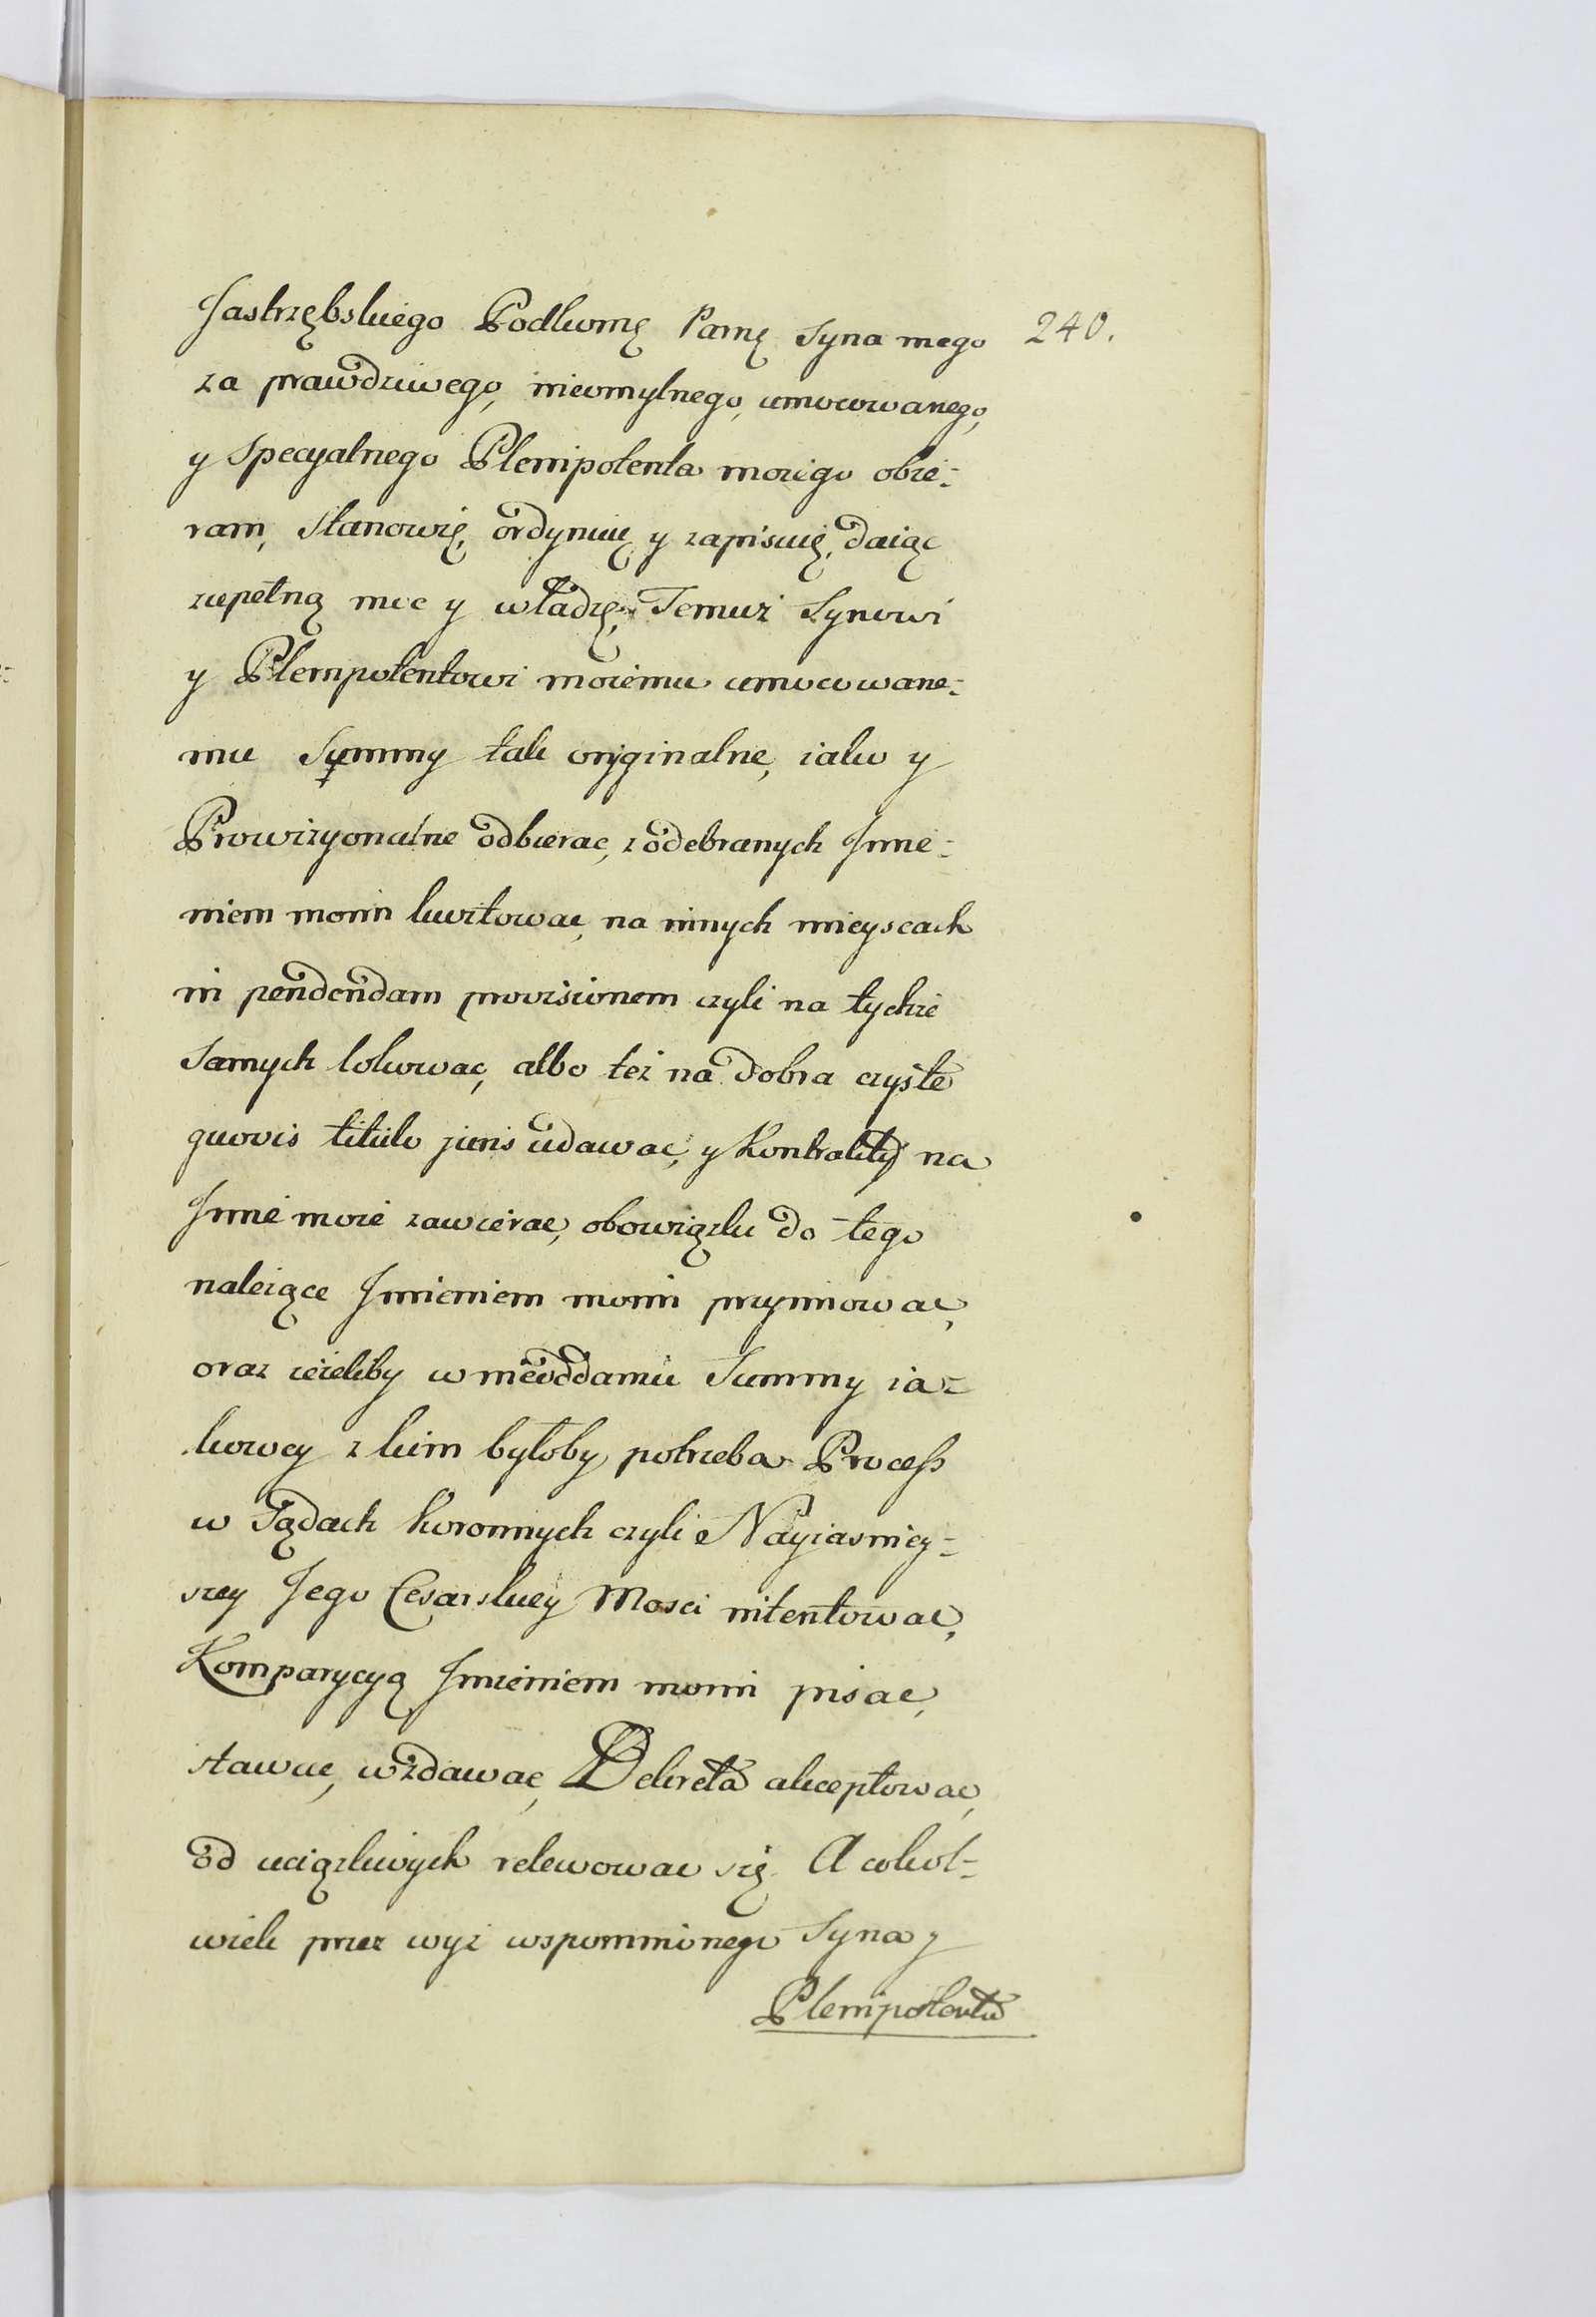 Jastrzębskiego Podkomę Pamę Syna mego 240.
za prawdziwego, nieomylnego, umocowanego,
y specyalnego Plenipotenta mojego obie-
ram, stanowię, ordynuię y zapisuię, daiąc
zupełną moc y władzę, Temuż Synowi
y Plenipotentowi mojemu umocowane-
mu Summy tak oryginalne, iako y
Prowizyonalne odbierac, z odebranych Jmie-
niem moim kwitowac, na innych mieyscach
in pendendam provisionem czyli na tychże
samych lokowac, albo też na dobra czyste
quovis titulo juris udawac, y Kontrakty na
Jmie moie zawierac, obowiązki do tego
należące Jmieniem moim przyimowac,
oraz ieżeliby w nieoddaniu Summy ia-
kowey z kim byłoby potrzeba Process
w Sądach Koronnych czyli Nayiasniey-
szey Jego Cesarskiey Mosci intentowac,
Komparycyą Jmieniem moim pisac,
stawac, wzdawac, Dekreta akceptowac,
od uciążliwych relewowac się. A cokol-
wiek przez wyż wspomnionego Syna y
Plenipotenta